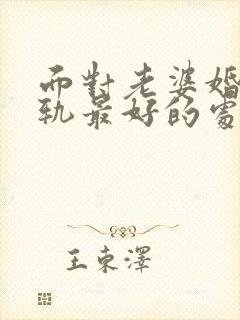 而對老婆婚
軌最好的處
王東澤